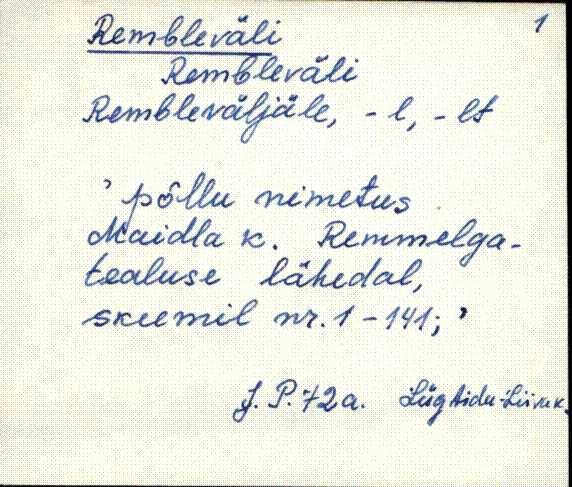 1
Rembleväli
Rembleväli
Rembleväljäle, -l, -lt
' põllu nimetus
Maidla k. Remmelga-
tealuse lähedal,
skeemil nr. 1-141; '
J. P. 72a.